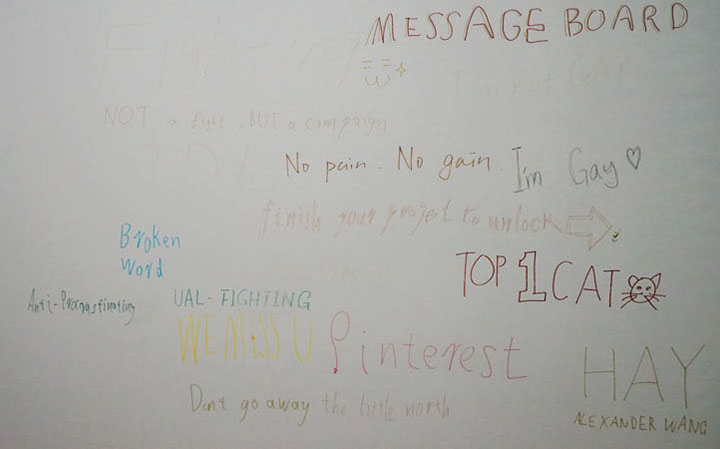 MESSAGE BOARD
I'm not Gay
NOT a fight, BUT a campaign
No pain. No gain.
I'm Gay
finish your project to unlock
Broken
Word
TOP 1 CAT
Anti-Procrastinating
UAL-FIGHTING
WE MiSS U
Pinterest
HAY
ALEXANDER WANG
Don't go away the little north